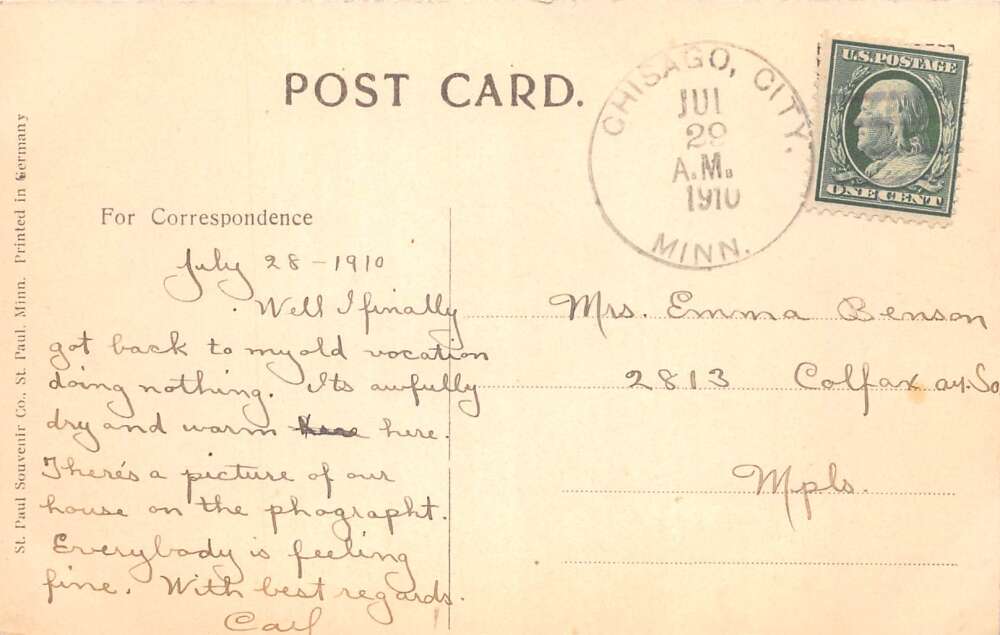 POST CARD.
CHISAGO, CITY.
JUL
29
A.M.
1910
MINN.
U.S. POSTAGE
ONE CENT
St. Paul Souvenir Co., St. Paul, Minn. Printed in Germany
For Correspondence
July 28 - 1910
Well I finally
got back to my old vocation
doing nothing. Its awfully
dry and warm here.
There's a picture of our
house on the phographt.
Everybody is feeling
fine. With best regards.
Carl
Mrs. Emma Benson
2813 Colfax av. So
Mpls.